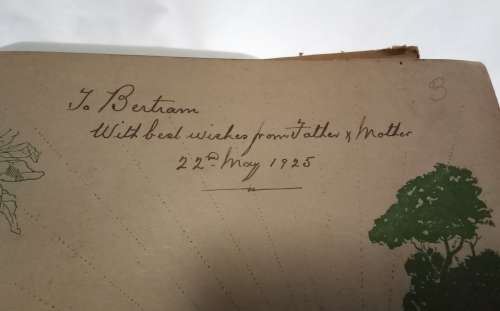 To Bertram
With best wishes from Father & Mother
22nd May 1925